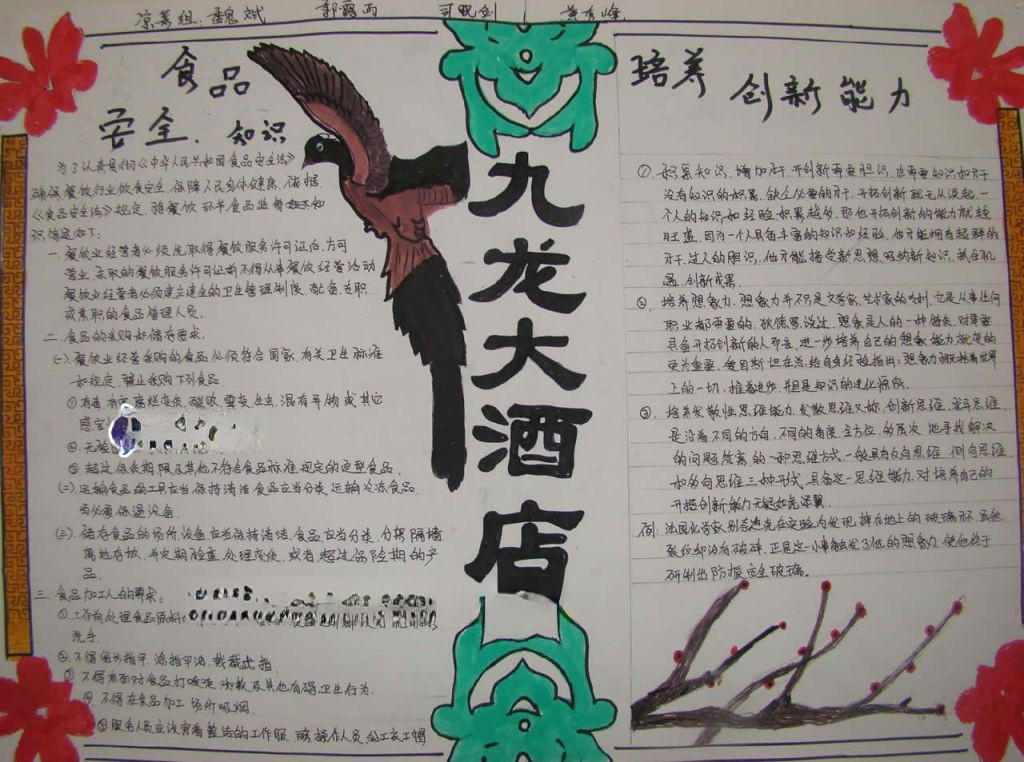 凉菜组：魏斌 郭露雨 司晓剑 黄秀峰
食品
安全、知识
为了认真贯彻《中华人民共和国食品安全法》
确保餐饮行业饮食安全，保障人民身体健康，依据
《食品安全法》规定，将餐饮环节食品监督相关知
识摘走如下：
一、餐饮业经营者必须先取得餐饮服务许可证后，方可
营业，未取的餐饮服务许可证前不得从事餐饮经营活动
餐饮业经营者必须建立建全的卫生管理制度，配备专职
或兼职的食品管理人员．
二、食品的采购和储存要求．
(一)、餐饮业经营采购的食品必须符合国家有关卫生标准
和规定，禁止采购下列食品
①有毒，有害，腐烂变质，酸败，霉变，生虫，混有异物或其它
感官
②、无检
③ 超过保质期限及其他不符合食品标准规定的定型食品．
(二)、运输食品的工具应当保持清洁，食品应当分类，运输冷冻食品
当必要保温设备．
(三)、储存食品的场所，设备应当保持清洁，食品应当分类，分架，隔墙
离地存放，并定期检查，处理变质，或者超过保险期的产
品．
三、食品加工人的要求：
①工作前处理食品原料
洗手．
②、不得留长指甲，涂指甲油，戴戒指
③ 不得有面对食品打喷嚏，咳嗽及其他有碍卫生行为．
④ 不得在食品加工场所吸烟．
⑤服务人员应该穿着整洁的工作服，厨房操作人员，的工衣工帽
九龙大酒店
培养
创新能力
①、积累知识，增加才干，开创新需要胆识，也需要知识和才干
没有知识的积累，缺乏必要的才干，开拓创新就无从谈起．一
个人的知识和经验如果越多，那他开拓创新的能力就越
旺盛，因为一个人具备丰富的知识和经验，他才能拥有超群的
才干，过人的胆识，他才能接受新思想，吸纳新知识，抓住机
遇，创新成果．
②、培养想象力，想象力并不只是文学家，艺术家的专利，它是从事任何
职业都需要的，狄德罗说过，想象是人的一种特质，对需要
具备开拓创新的人而言，进一步培养自己的想象能力就更的
更为重要，爱因斯坦在总结自身经验指出，想象力概括着世界
上的一切，推着进步，并且是知识的进化源泉．
③、培养发散性思维能力，发散思维又称，创新思维，求异思维
是沿着不同的方向，不同的角度，全方位，多层次地寻找解决
的问题答案的一种思维方式，一般具有反向思维，侧向思维
和多向思维三种形式，具备这一思维能力，对培养自己的
开拓创新能力无疑如虎添翼．
例、法国化学家别涅迪克在实验内发现，摔在地上的玻璃杯，虽然
裂纹却没有破碎，正是这一小事触发了他的想象力，使他终于
研制出防振安全玻璃．